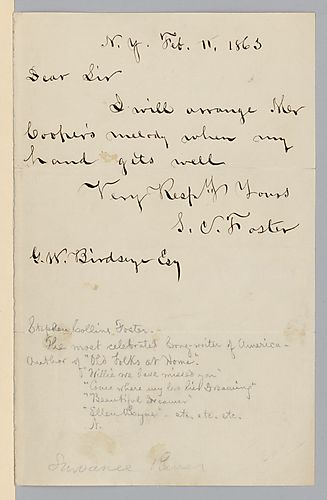 N. Y. Feb. 11, 1863
Dear Sir
I will arrange Mr
Cooper's melody when my
hand gets well
Very Respy Yours
S. C. Foster
G. W. Birdseye Esq
Stephen Collins Foster.
The most celebrated Song-writer of America -
Author of "Old Folks at Home",
"Willie we have missed you"
"Come where my love lies Dreaming"
"Beautiful Dreamer"
"Ellen Bayne" - etc. etc. etc.
Suwanee River